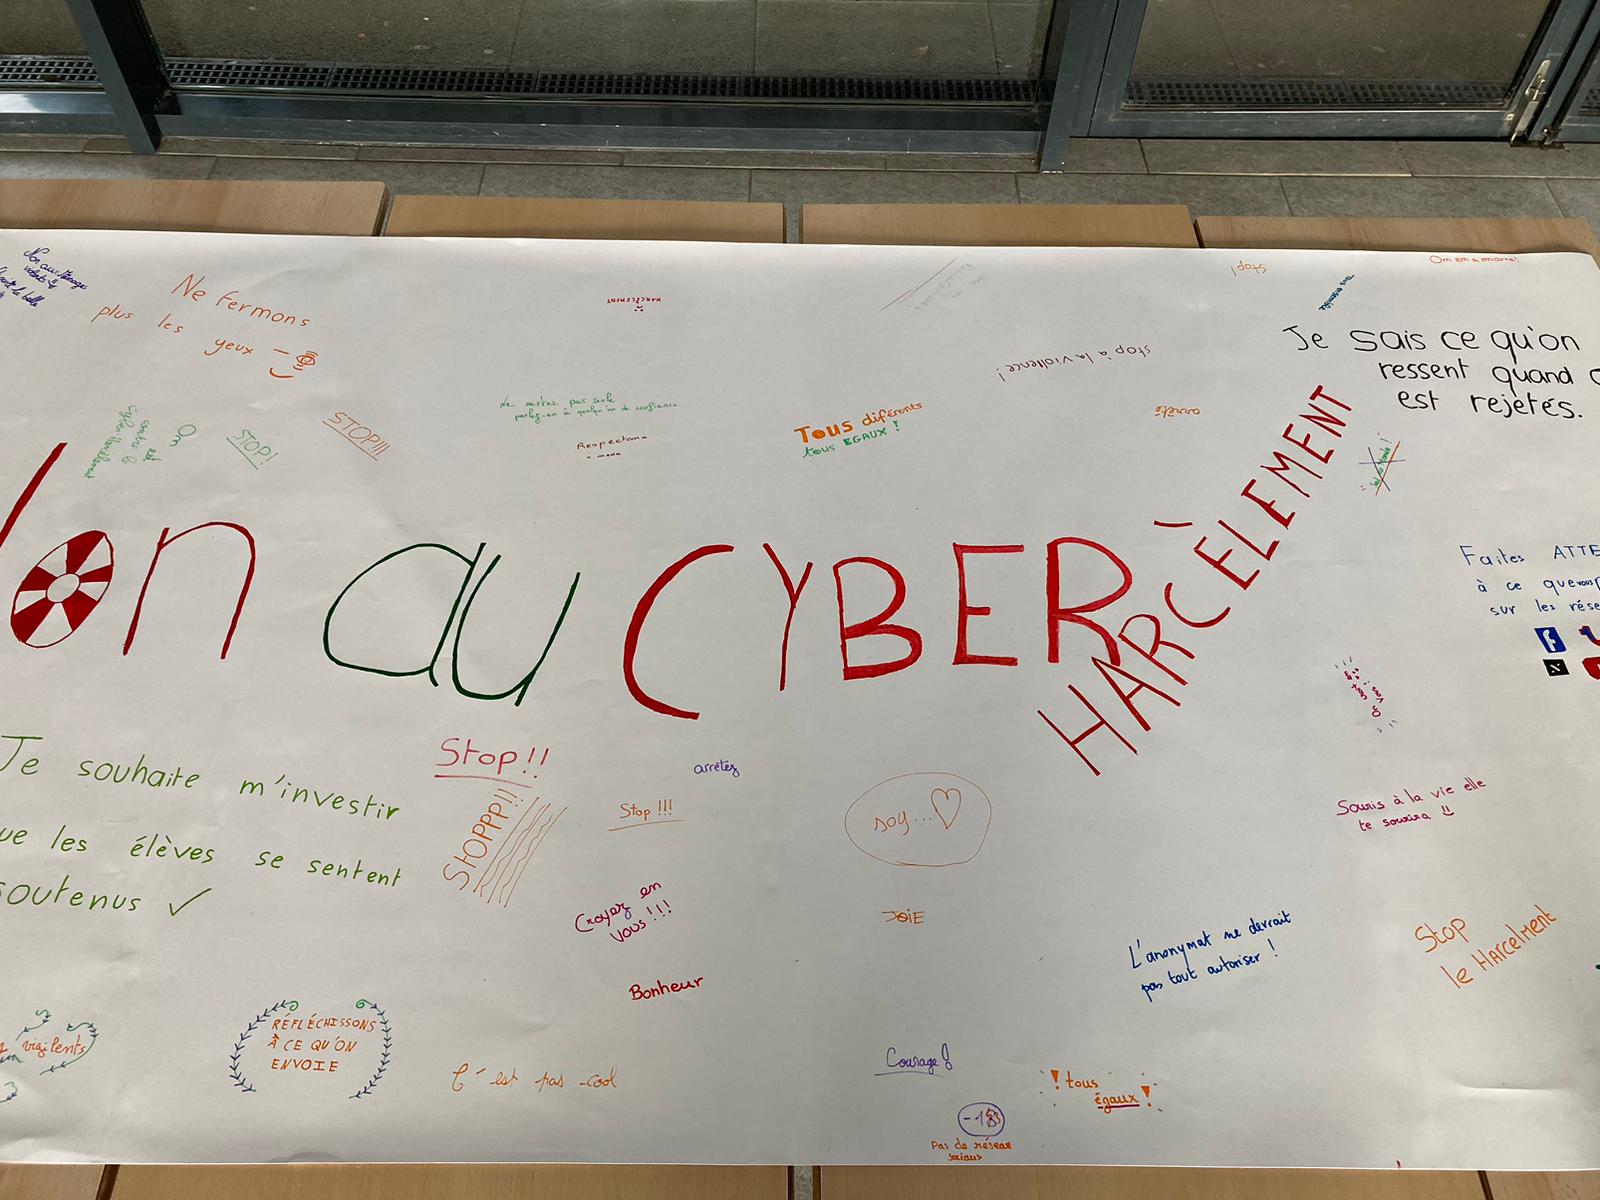 Ne fermons
plus les
yeux
HARCÈLEMENT
stop!
On en a marre!
Tous ensemble
Je sais ce qu'on
ressent quand
est rejetés.
stop à la violence!
Ne restez pas seule
parlez-en à quelqu'un de confiance
Respectons
Tous différents
tous EGAUX !
arrête
On est
contre le
cyber-harcèlement
STOP!
STOP!!!
on au CYBER
HARCÈLEMENT
Faites ATTE
à ce que vous
sur les rése
Je souhaite m'investir
ue les élèves se sentent
soutenus ✓
Stop!!
STOPPP!!
arrêtez
Stop !!!
soy... ♡
Souris à la vie elle
te sourira
Croyez en
vous !!!
JOIE
Bonheur
L'anonymat ne devrait
pas tout autoriser !
Stop
le HArcelMent
vigilents
RÉFLÉCHISSONS
À CE QU'ON
ENVOIE
C'est pas cool
Courage!
! tous
égaux !
Pas de réseau
sociaux